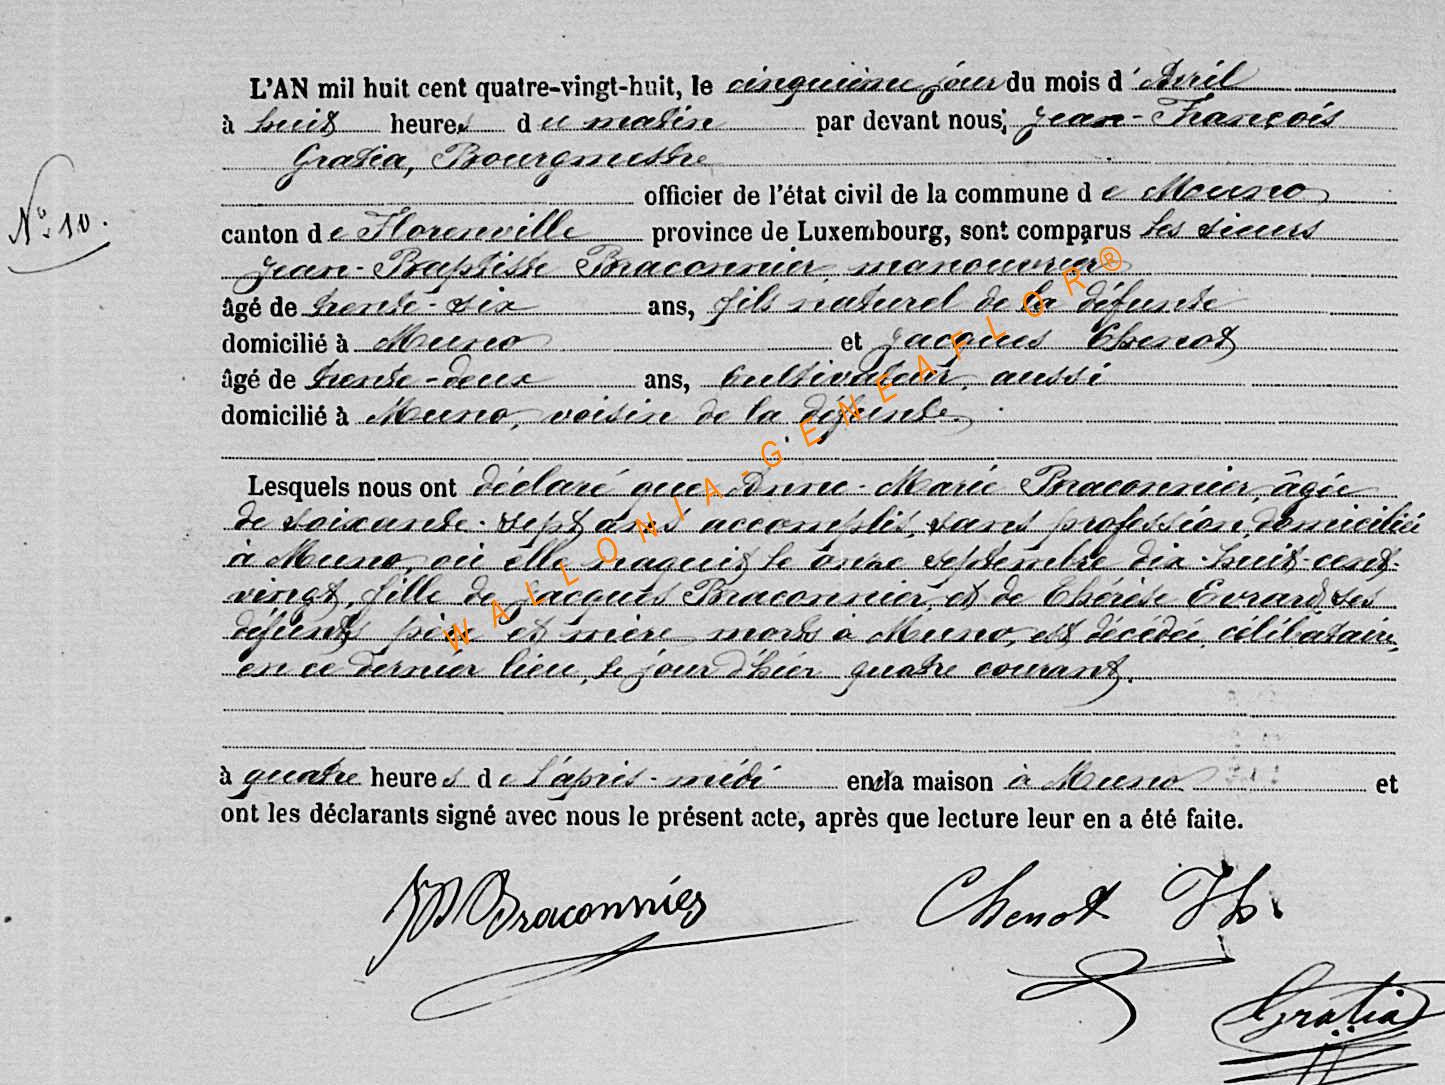 L'AN mil huit cent quatre-vingt-huit, le cinquième jour du mois d'Avril
à huit heures du matin par devant nous, Jean-François
Gratia, Bourgmestre
officier de l'état civil de la commune de Muno
N° 10.
canton de Florenville province de Luxembourg, sont comparus les sieurs
Jean-Baptiste Braconnier manouvrier
âgé de trente-six ans, fils naturel de la défunte
domicilié à Muno et Jacques Chenot
âgé de trente-deux ans, Cultivateur, aussi
domicilié à Muno, voisin de la défunte.
Lesquels nous ont déclaré que Anne-Marie Braconnier, âgée
de soixante-sept ans accomplis, sans profession, domiciliée
à Muno, où elle naquit le onze septembre dix-huit-cent-
vingt, fille de Jacques Braconnier, et de Thérèse Evrard, ses
défunts père et mère morts à Muno, est décédée célibataire,
en ce dernier lieu, le jour d'hier quatre courant.
à quatre heures de l'après-midi en la maison à Muno et
ont les déclarants signé avec nous le présent acte, après que lecture leur en a été faite.
JB Braconnier Chenot
Gratia
WALLONIA-GENEAFLOR®